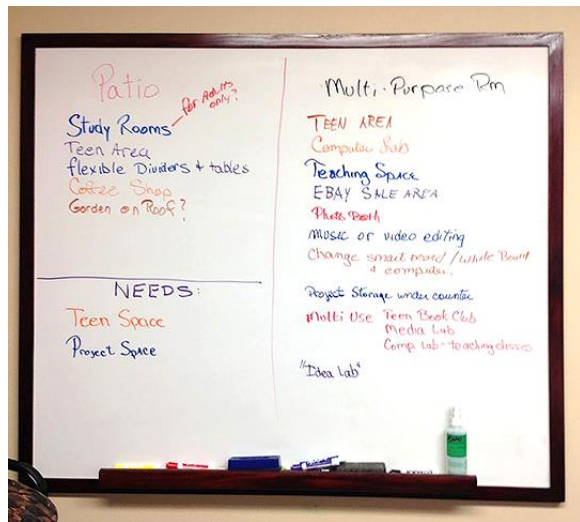 Patio
for Adults
only?
Study Rooms
Teen Area
flexible Dividers & tables
Coffee Shop
Garden on Roof?
NEEDS:
Teen Space
Project Space
Multi-Purpose Rm
TEEN AREA
Computer Lab
Teaching Space
EBAY SALE AREA
Photo Booth
Music or video editing
Change smart board / White Board
& computer.
Project Storage under counter
Multi Use Teen Book Club
Media Lab
Comp Lab - teaching classes
"Idea Lab"